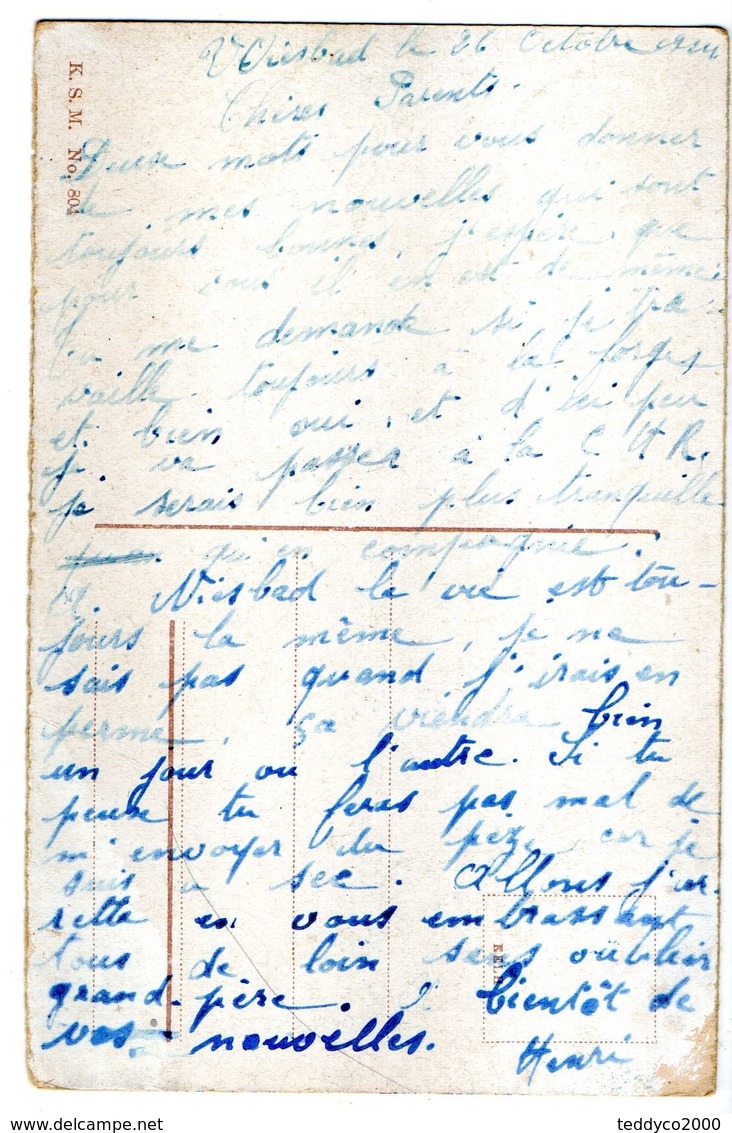 Wiesbad le 26 Octobre
Chires Parents.
Deux mots pour vous donner
de mes nouvelles qui sont
toujours bonnes, j'espère que
pour vous il en est de même.
Tu me demande si je tra-
vaille toujours à la forges
et bien oui, et d'ici peu
je va passer à la C H R.
je serais bien plus tranquille
qu'en compagnie.
A Wiesbad la vie est tou-
jours la même, je ne
sais pas quand j'irais en
perme, ça viendra bien
un jour ou l'autre. Si tu
peux tu feras pas mal de
m'envoyer du pèze car je
suis a sec. Allons j'ar-
rette en vous embrassant
tous de loin sans oublier
grand-père. A bientôt de
vos nouvelles.
Henri
K. S. M. No. 804
teddyco2000